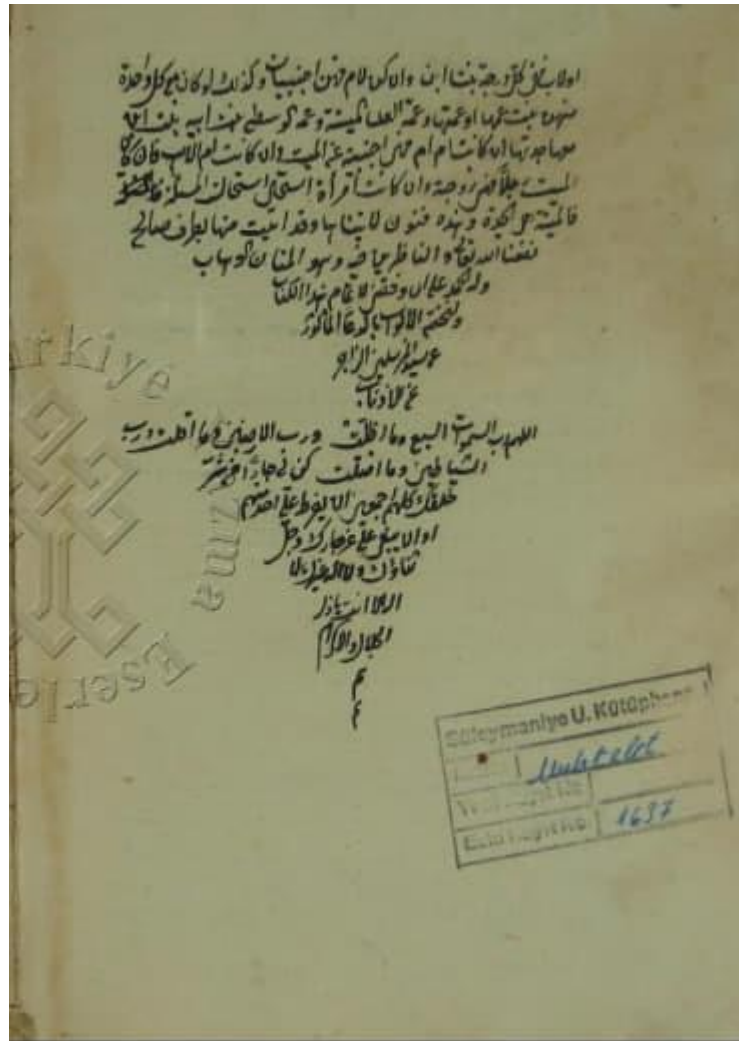 اولاب فى كل درجة بنت ابن وان كن لام فهن اجنبيات وكذلك لو كان مع كل واحدة
منهن بنت عمها او عمتها وعمة العليا الميتة وعمة الوسطى
معها جدتها ان كانت ام ام فهى اجنبية عن الميت وان كانت ام الاب فان كان
الميت رجلا فهى زوجة وان كانت امرأة استحال استحال
فالميتة هى الجدة وهذه فنون لا يتناهى وقد اتيت منها بطرف صالح
نفعنا الله تعالى والناظر بما فيه وهو المنان الوهاب
وله الحمد على ان وفقنى لاتمام هذا الكتاب
ولنختم الابواب بالدعاء المأثور
عن سيد المرسلين الزاجر
عن
اللهم رب السموات السبع وما اظلت ورب الارضين وما اقلت ورب
الشياطين وما اضلت كن لى جارا من شر
خلقك كلهم اجمعين ان يفرط على احد منهم
او ان يبغى على عز جارك وجل
ثناؤك ولا اله غيرك لا
اله الا انت ياذا
الجلال والاكرام
م
م
Türkiye
Yazma
Eserler
Süleymaniye U. Kütüphanesi
Muhtelit
Yeni Kayıt No
Eski Kayıt No 1637